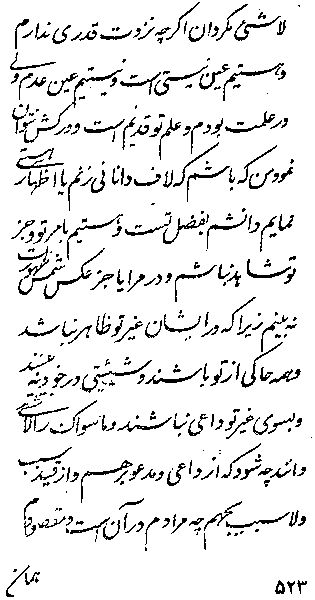 لاشئی مگردان اگرچه نزدت قدری ندارم
و هستیم عین نیستی است و نیستیم عین عدم ولی
در علمت بودم و علم تو قدیم است و درکش نتوان
نمود من که باشم که لاف دانائی زنم یا اظهار هستی
نمایم دانشم بفضل تست و هستیم بامر تو و جز
تو شاهد نباشم و در مرایا جز عکس شمس ظهورت
نه بینم زیرا که در ایشان غیر تو ظاهر نباشد
و همه حاکی از تو باشند و شیئیتی در خود نه بینند
و بسوی غیر تو داعی نباشند و ما سواک را لاشئی
دانند چه شود که از داعی و مدعو برهم و از قید سبب
و لا سبب بجهم چه مرادم در آن است و مقصودم
همان
۵۲۳